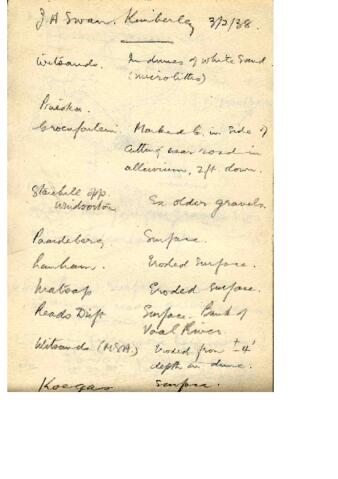 J H Swan. Kimberley 3/2/38.
Witsands. In dunes of white Sand.
(microliths)
Prieska.
Groenfontein. Marked G. in Side of
Cutting near road in
alluvium, 2ft down.
opp.
Windsorton Ex older gravels.
Paardeberg Surface.
Lanham. Eroded Surface.
Matsap Eroded Surface.
Reads Drift Surface. Bank of
Vaal River.
Witsands (MSA) Eroded from ±4'
depth in dune.
Koegas Surface.